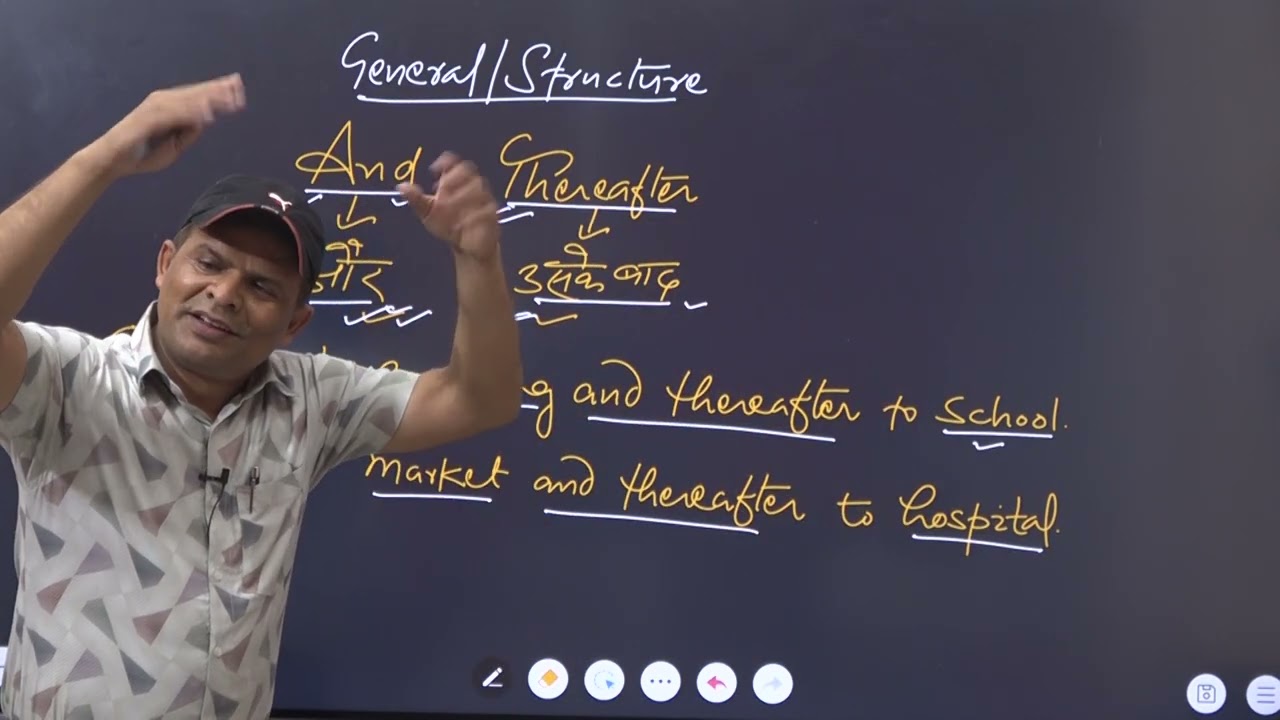 General/Structure
And Thereafter
और उसके बाद
and thereafter to school.
market and thereafter to hospital.